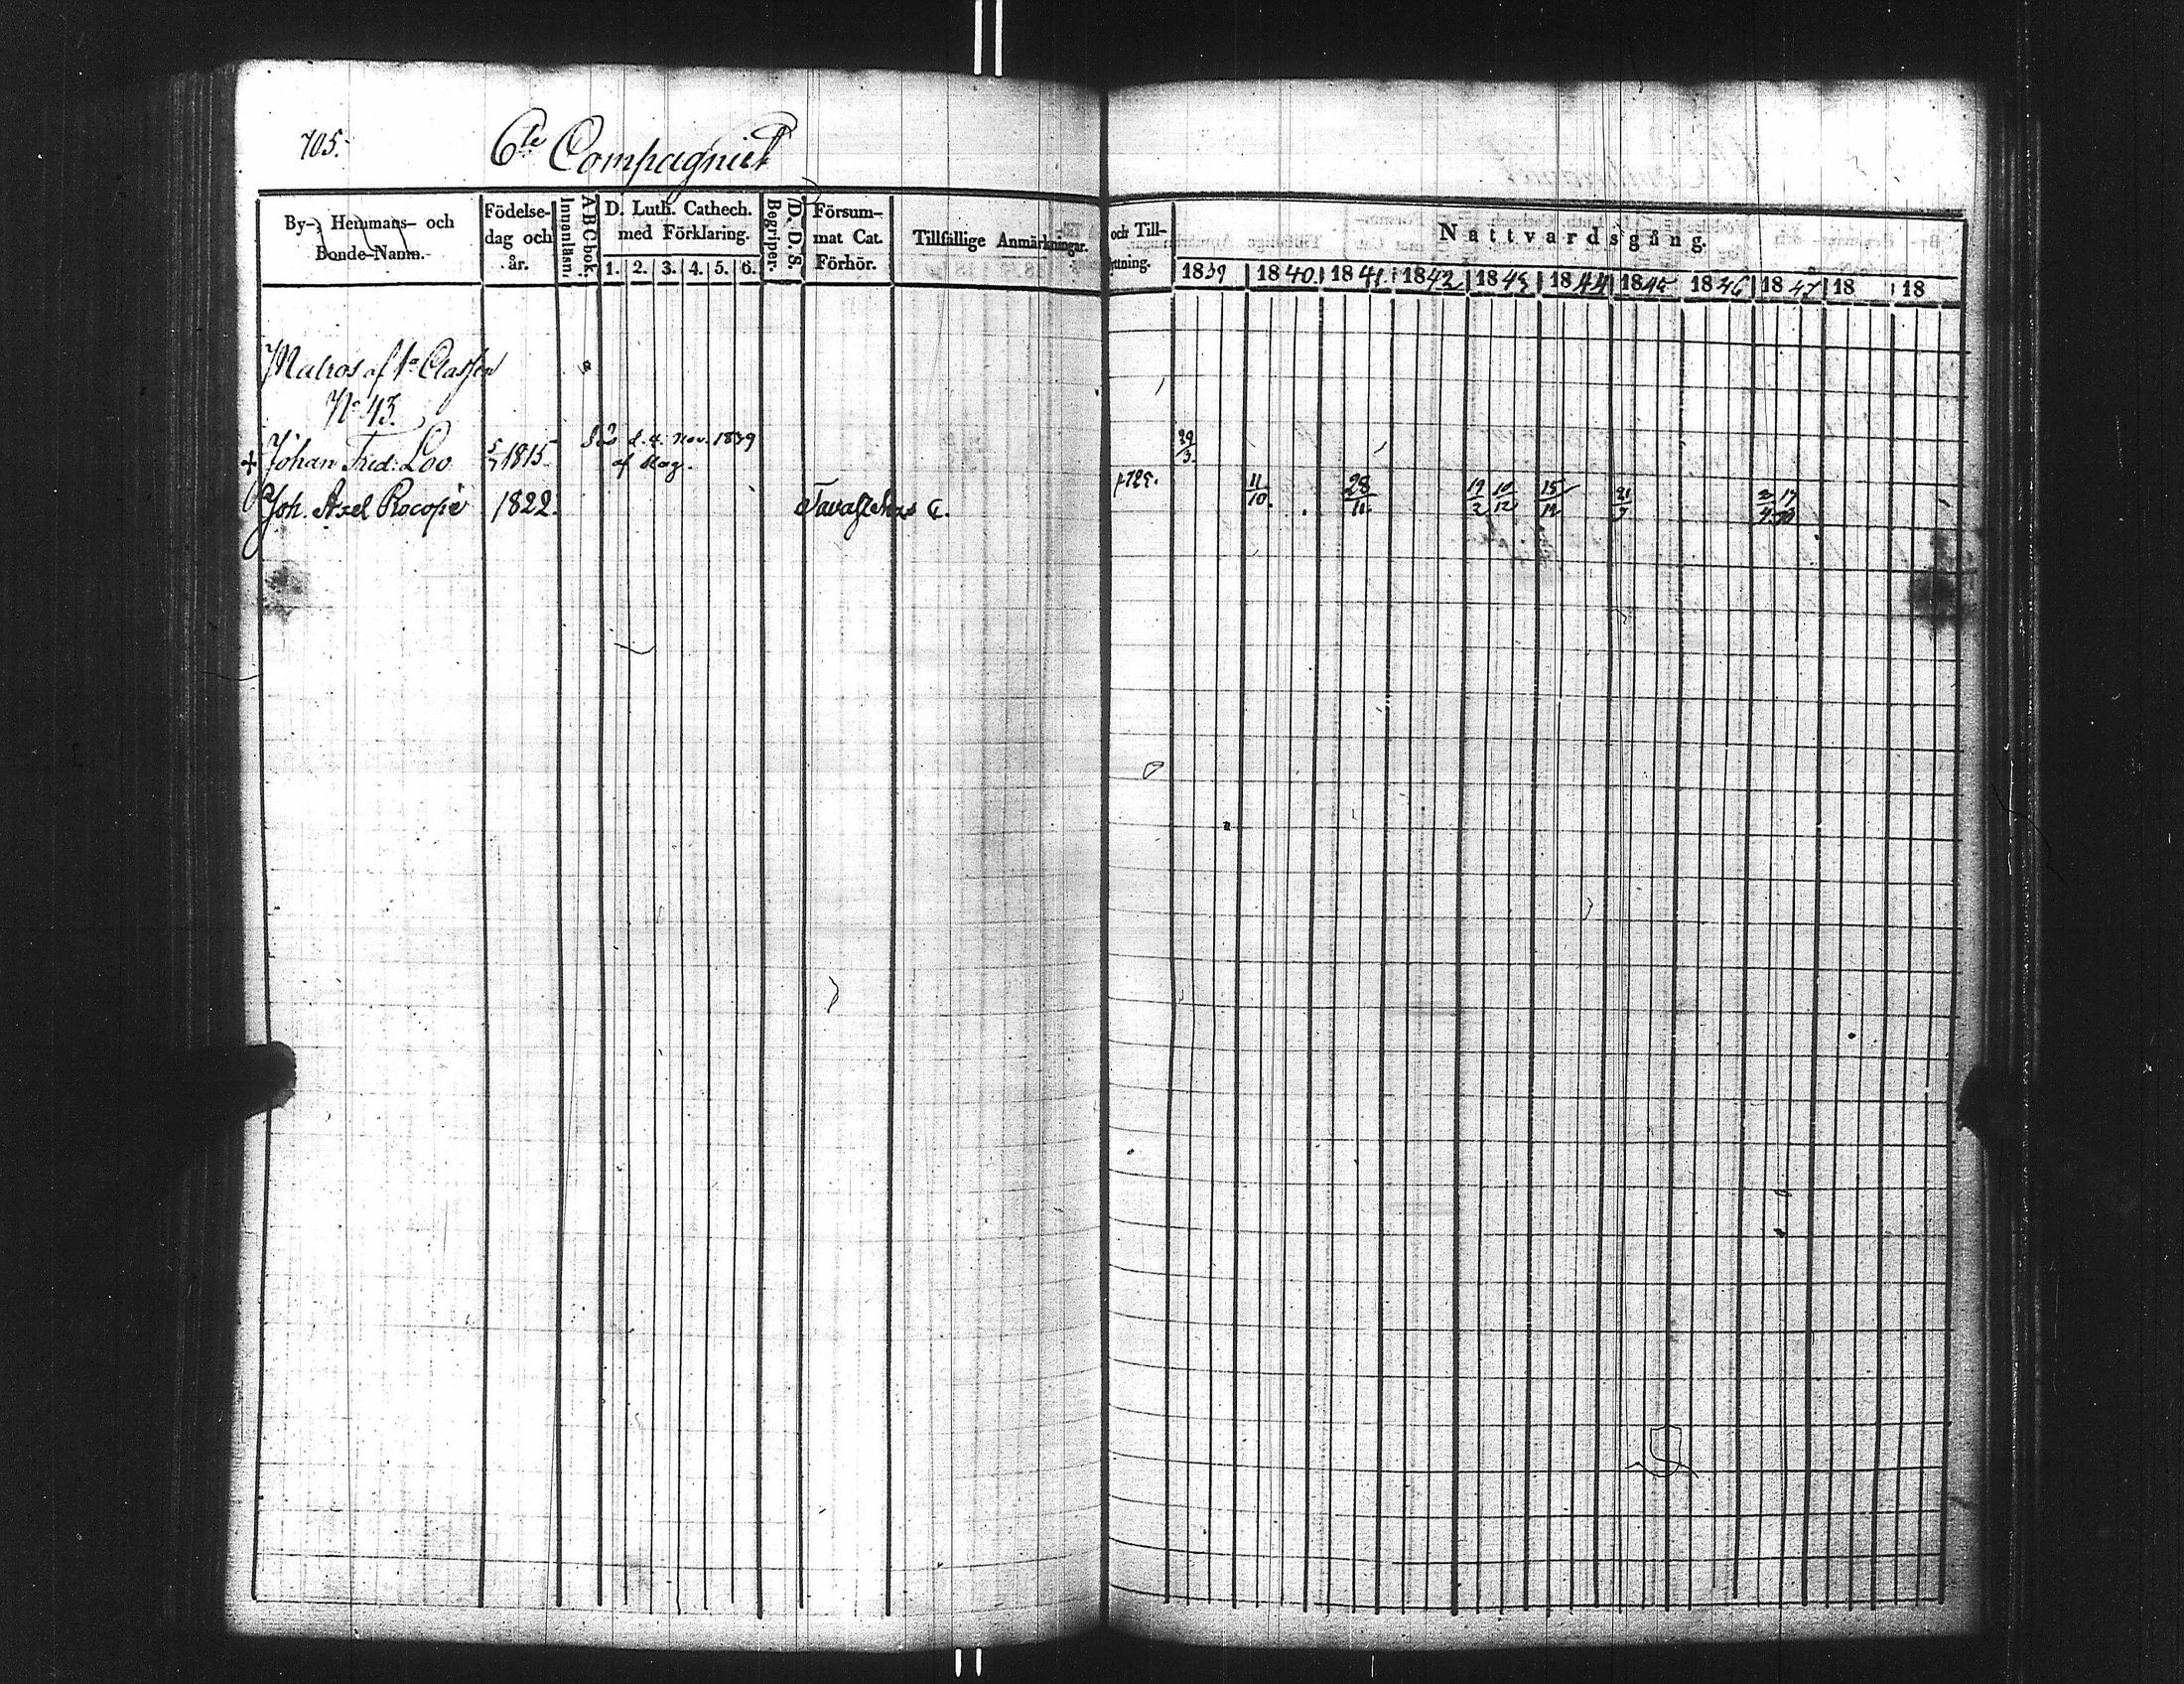 705.
6te Compagniet
By-, Hemmans- och Bonde-Namn.
Födelse-dag och år.
Innanläsn.
A B C bok.
D. Luth. Cathech. med Förklaring.
1. 2. 3. 4. 5. 6.
Begriper.
D. D. S.
Försum-mat Cat. Förhör.
Tillfällige Anmärkningar.
och Till-
ttning.
Nattvardsgång.
1839 1840 1841 1842 1843 1844 1845 1846 1847 18 18
Matros af 1a Classen
No 43.
d. 4. Nov. 1839
+ Johan Fred: Loo 5/7 1815 29/3.
af Slag.
Joh. Axel Procopé 1822. Tavastehus p. 725. 11/10. 28/11. 19/2 10/12 15/12 21/9